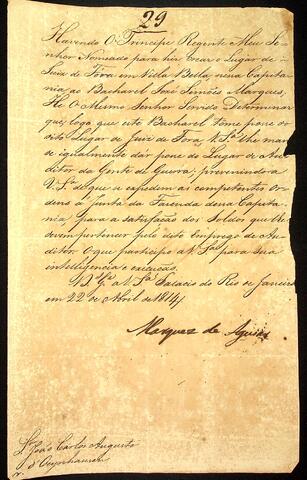 29
Havendo O Principe Regente Meu Se-
nhor Nomeado para hir crear o Lugar de
Juiz de Fora em Villa Bella nessa Capita-
nia ao Bacharel José Simões Marques,
He O Mesmo Senhor Servido Determinar
que, logo que este Bacharel tome posse do
dito Lugar de Juiz de Fora, V. Sª. lhe man-
de igualmente dar posse do Lugar de Au-
ditor da Gente de Guerra; prevenindo a
V. Sª. de que se expedem as competentes Or-
dens á Junta da Fazenda dessa Capita-
nia para a satisfação dos Soldos que lhe
devem pertencer pelo dito Emprego de Au-
ditor. O que participo a V. Sª. para sua
intelligencia e execução.
Ds. Gde. a V. Sª. Palacio do Rio de Janeiro
em 22 de Abril de 1814
Marquez de Aguiar
Sr. João Carlos Augusto
d'Oeynhausen